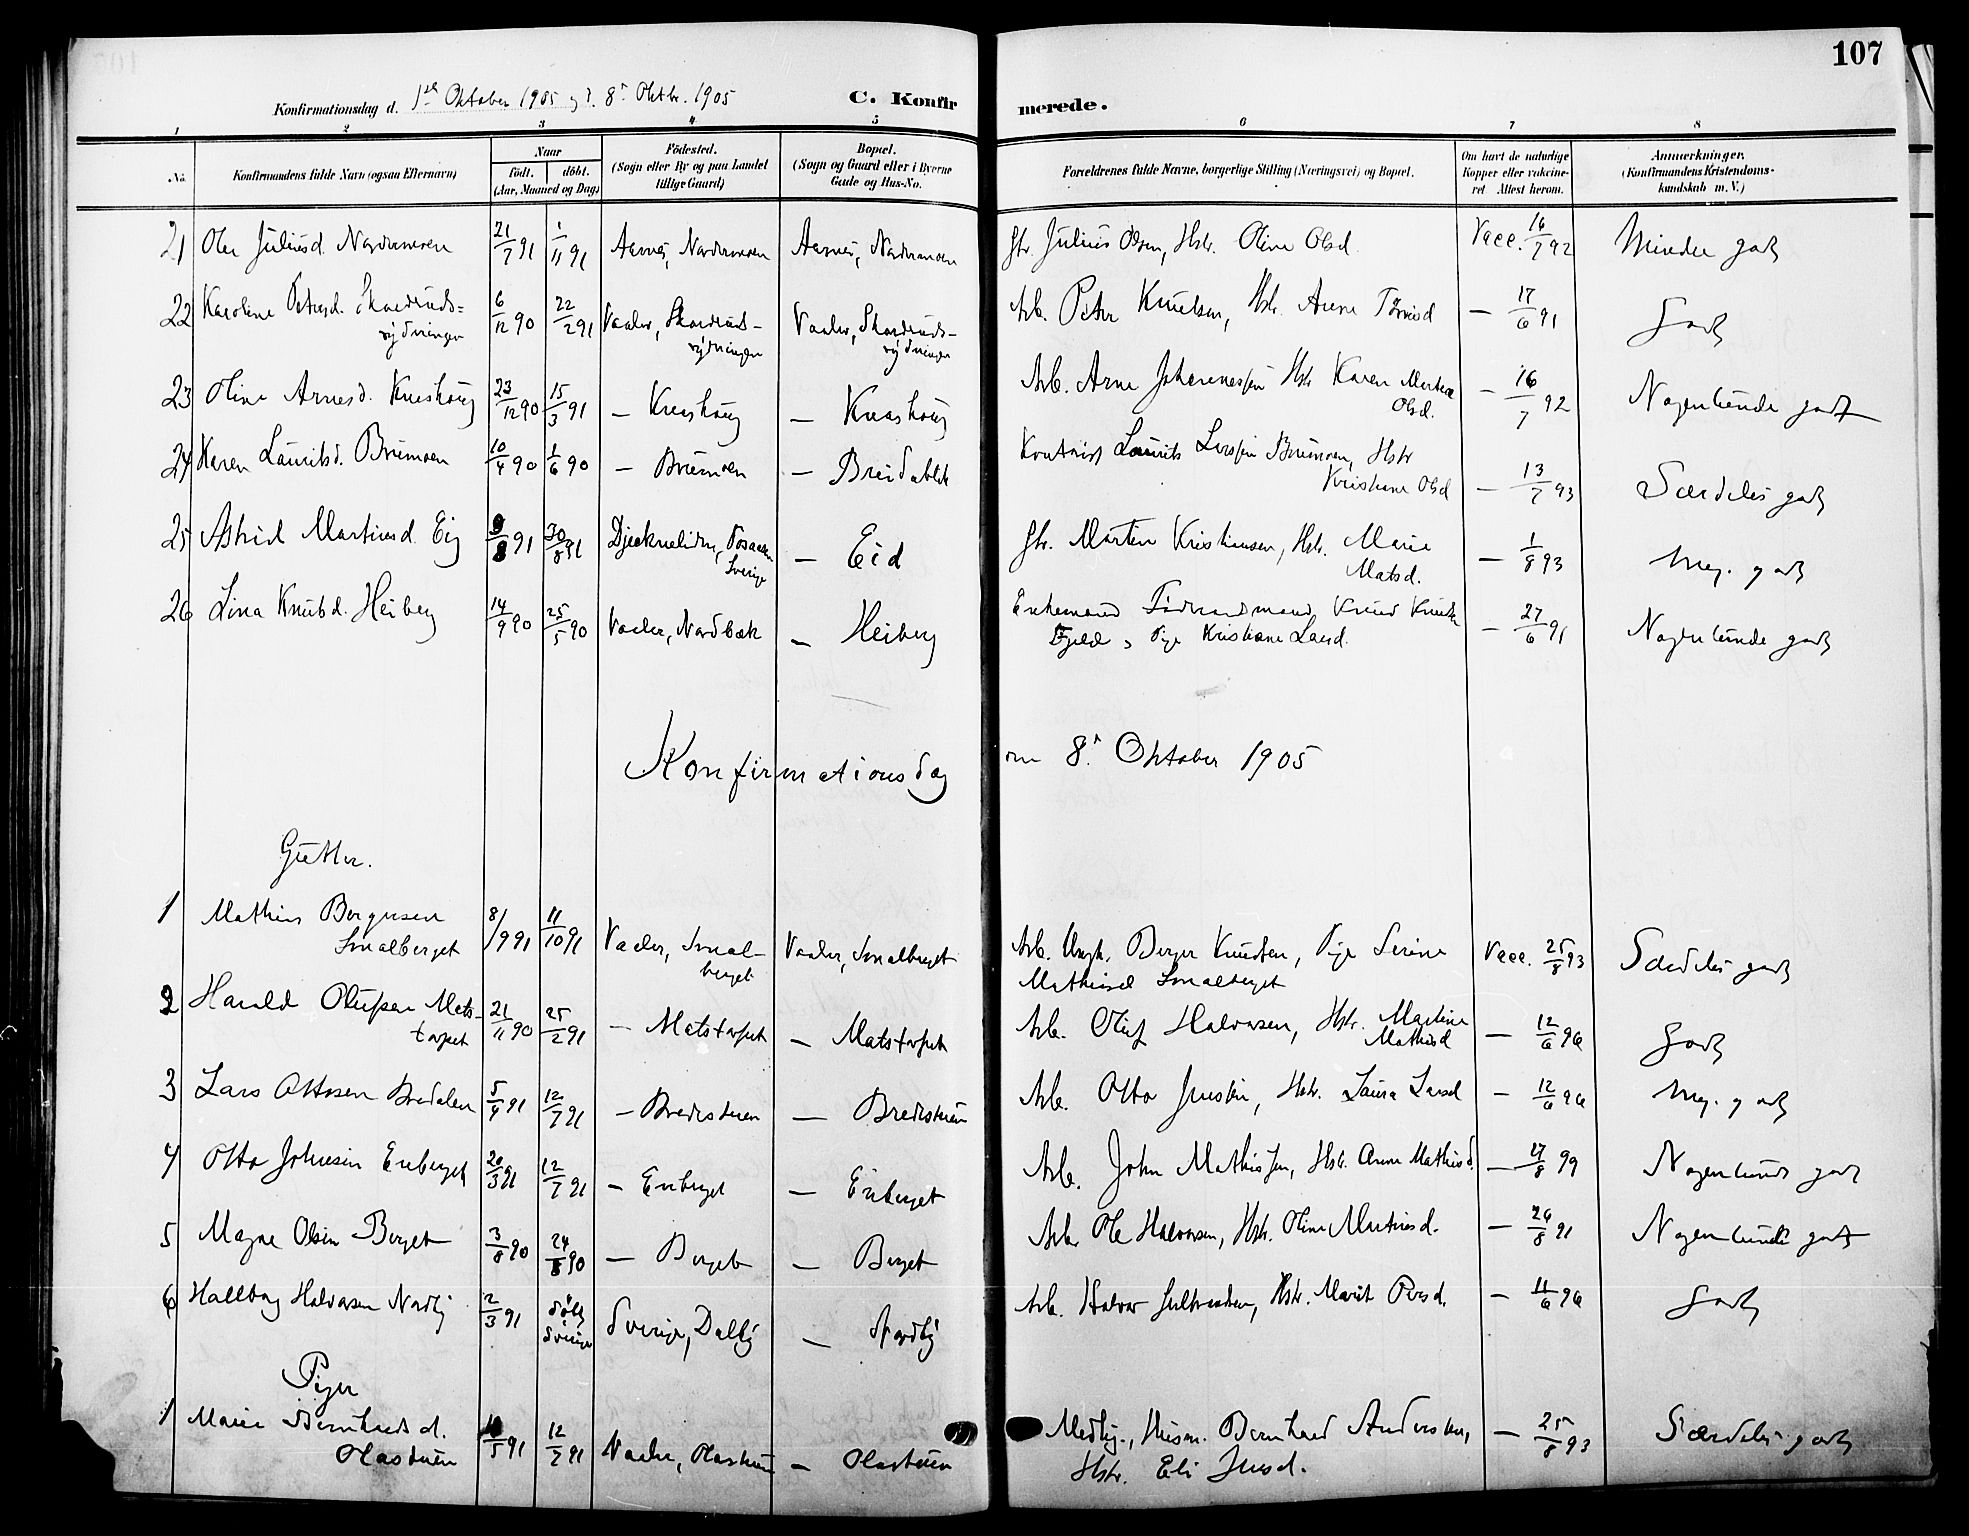 107
Konfirmationsdag d. 1ste Oktober 1905 og d. 8de Oktbr. 1905 C. Konfir merede.
1 2 3 4 5 6 7 8
No. Konfirmandens fulde Navn (ogsaa Efternavn) Naar født. døbt. (Aar, Maaned og Dag) Fødested. (Sogn eller By og paa Landet tillige Gaard) Bopæl. (Sogn og Gaard eller i Byerne Gade og Hus-No. Forældrenes fulde Navne, borgerlige Stilling (Næringsvei) og Bopæl. Om havt de naturlige Kopper eller vaccineret Attest herom. Anmærkninger. (Konfirmandens Kristendomskundskab m. V.)
21 Juliusd. Nordmoen 21/7 91 1/11 91 Aasnes, Nordmoen Aasnes, Nordmoen Julius Olsen, Hstr. Oline Olsd. Vacc. 16/7 92 Mindre godt
22 Karoline Petersd. Skaedruds-
rydningen 6/12 90 22/2 91 Vaaler, Skaedruds-
rydningen Vaaler, Skaedruds-
rydningen Arb. Peter Knutsen, Hstr. Anne — 17/6 91 Godt
23 Oline Arnesd. Knashaug 23/12 90 15/3 91 — Knashaug — Knashaug Arb. Arne Johannessen Hstr Karen Marthea
Olsd. — 16/7 92 Nogenlunde godt
24 Karen Lauritsd. Brumoen 10/4 90 1/6 90 — Brumoen — Breidablik Kontorist Laurits Larssen Brumoen, Hstr
Kristiane Olsd — 13/7 93 Særdeles godt
25 Astrid Martinsd. Eig 9/8 91 30/8 91 Sverige — Eid Martin Kristiansen, Hstr. Marie
Matsd. — 1/8 93 Meg. godt
26 Lina Knutsd. Heiberg 14/9 90 25/5 90 Vaaler, Nordbæk — Heiberg Enkemand Knud
Pige Kristiane Larsd. — 27/6 91 Nogenlunde godt
Konfirmationsdag den 8de Oktober 1905
Gutter.
1 Mathias Bergersen
Smalberget 8/9 91 11/10 91 Vaaler, Smal-
berget Vaaler, Smalberget Arb. Ungk. Berger Knudsen, Pige Serine
Mathiasd Smalberget Vacc. 25/8 93 Særdeles godt
2 Harald Olufsen Mats-
torpet 21/11 90 25/2 91 — Matstorpet — Matstorpet Arb. Oluf Halvorsen, Hstr. Martine
Mathisd — 12/6 96 Godt
3 Lars Ottosen Bredalen 5/4 91 12/7 91 — Bredestuen — Bredestuen Arb. Otto Jensen, Hstr. Laura Larsd — 12/6 96 Meg. godt
4 Otto Johnsen Enberget 20/3 91 12/7 91 — Enberget — Enberget Arb. John Mathissen, Hstr. Anne Mathisd. — 27/8 99 Nogenlunde godt
5 Magne Olsen Berget 3/8 90 24/8 90 — Berget — Berget Arb. Ole Halvorsen, Hstr. Oline Martinsd. — 26/8 91 Nogenlunde godt
6 Hallvor Halvorsen Nordby 2/3 91 døbt
Sverige Sverige, Dalby — Nordby Arb. Halvor Hstr. Marit Persd. — 11/6 96 Godt
Piger
1 Marie Bernhardsd.
Olastuen 10/5 91 12/7 91 Vaaler, Olastuen — Olastuen Husm. Bernhard Andersen,
Hstr. Eli Jensd. — 25/8 93 Særdeles godt